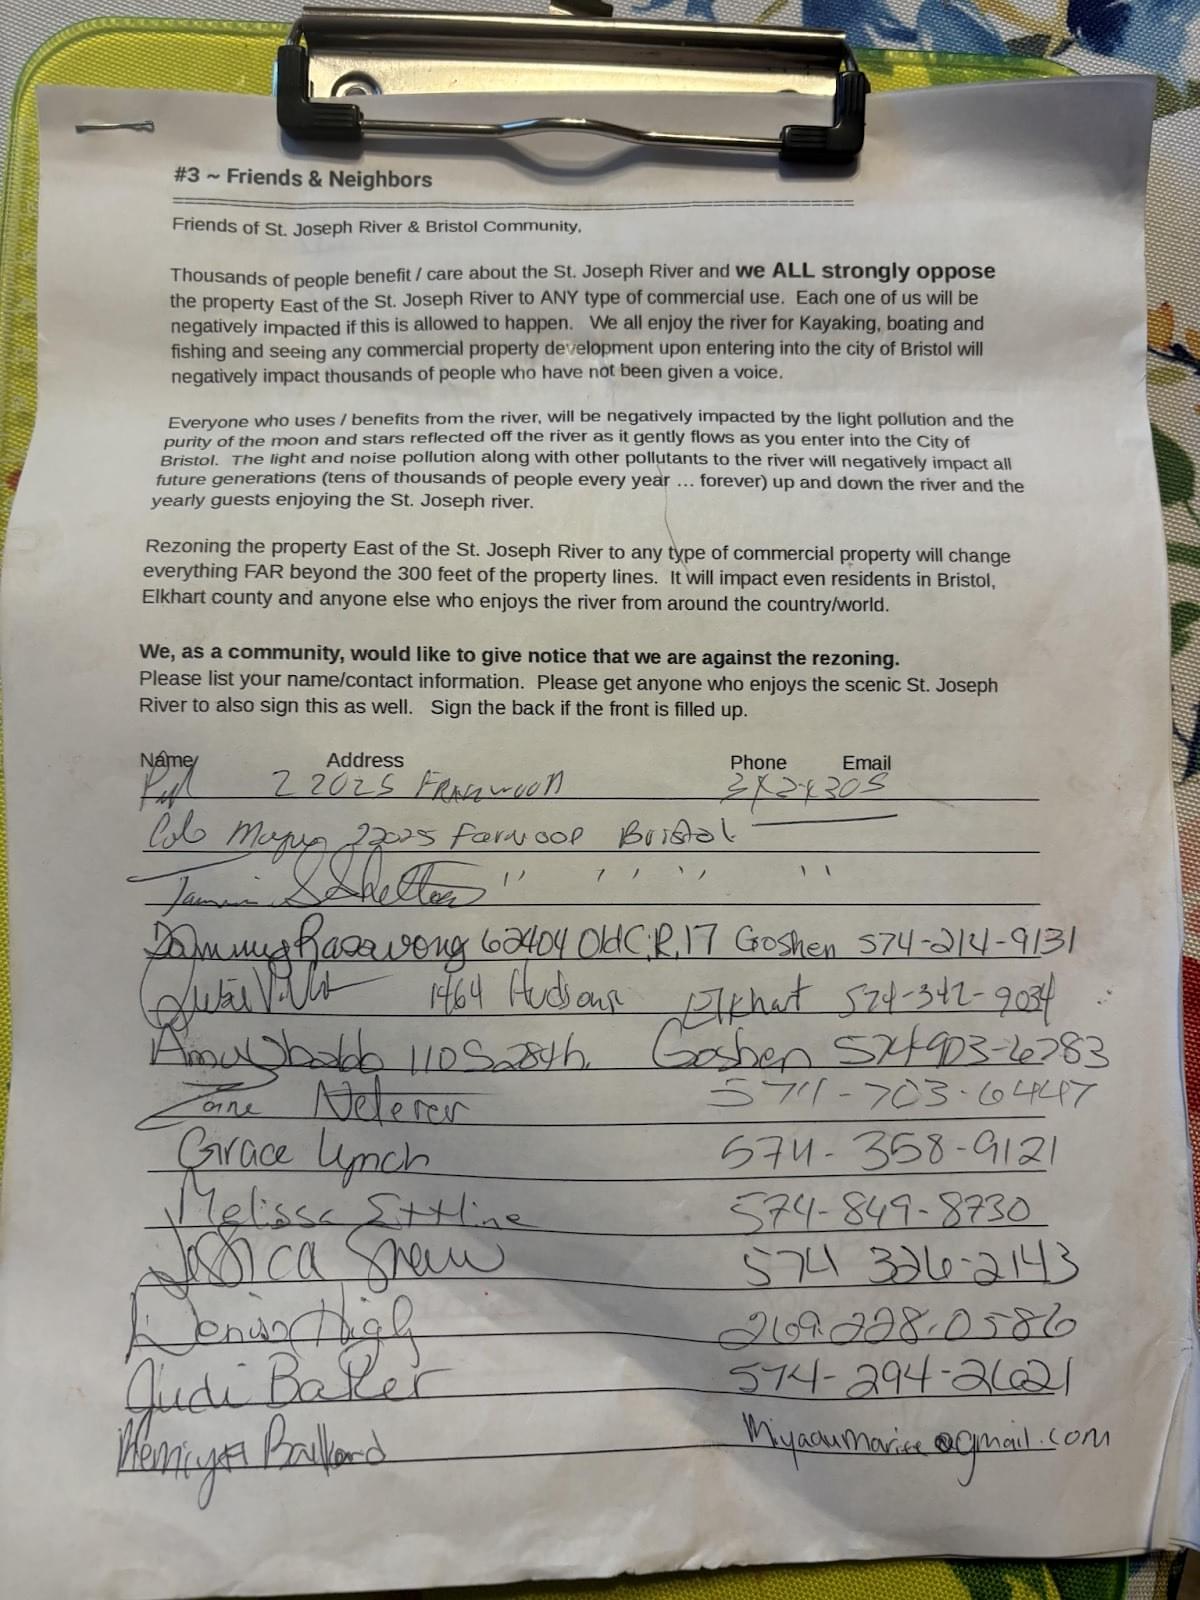 #3 ~ Friends & Neighbors
Friends of St. Joseph River & Bristol Community,
Thousands of people benefit / care about the St. Joseph River and we ALL strongly oppose
the property East of the St. Joseph River to ANY type of commercial use. Each one of us will be
negatively impacted if this is allowed to happen. We all enjoy the river for Kayaking, boating and
fishing and seeing any commercial property development upon entering into the city of Bristol will
negatively impact thousands of people who have not been given a voice.
Everyone who uses / benefits from the river, will be negatively impacted by the light pollution and the
purity of the moon and stars reflected off the river as it gently flows as you enter into the City of
Bristol. The light and noise pollution along with other pollutants to the river will negatively impact all
future generations (tens of thousands of people every year ... forever) up and down the river and the
yearly guests enjoying the St. Joseph river.
Rezoning the property East of the St. Joseph River to any type of commercial property will change
everything FAR beyond the 300 feet of the property lines. It will impact even residents in Bristol,
Elkhart county and anyone else who enjoys the river from around the country/world.
We, as a community, would like to give notice that we are against the rezoning.
Please list your name/contact information. Please get anyone who enjoys the scenic St. Joseph
River to also sign this as well. Sign the back if the front is filled up.
Name Address Phone Email
22025
22025 Bristol
Shelton " " " "
62404 Old C.R. 17 Goshen 574-214-9131
1464 Elkhart 574-342-9034
110 S 28th. Goshen 574-903-6783
Zane Neterer 574-703-6447
Grace Lynch 574-358-9121
Melissa 574-849-8730
Jessica 574 326-2143
High 269-228-0586
Judi Baker 574-294-2621
Ballard